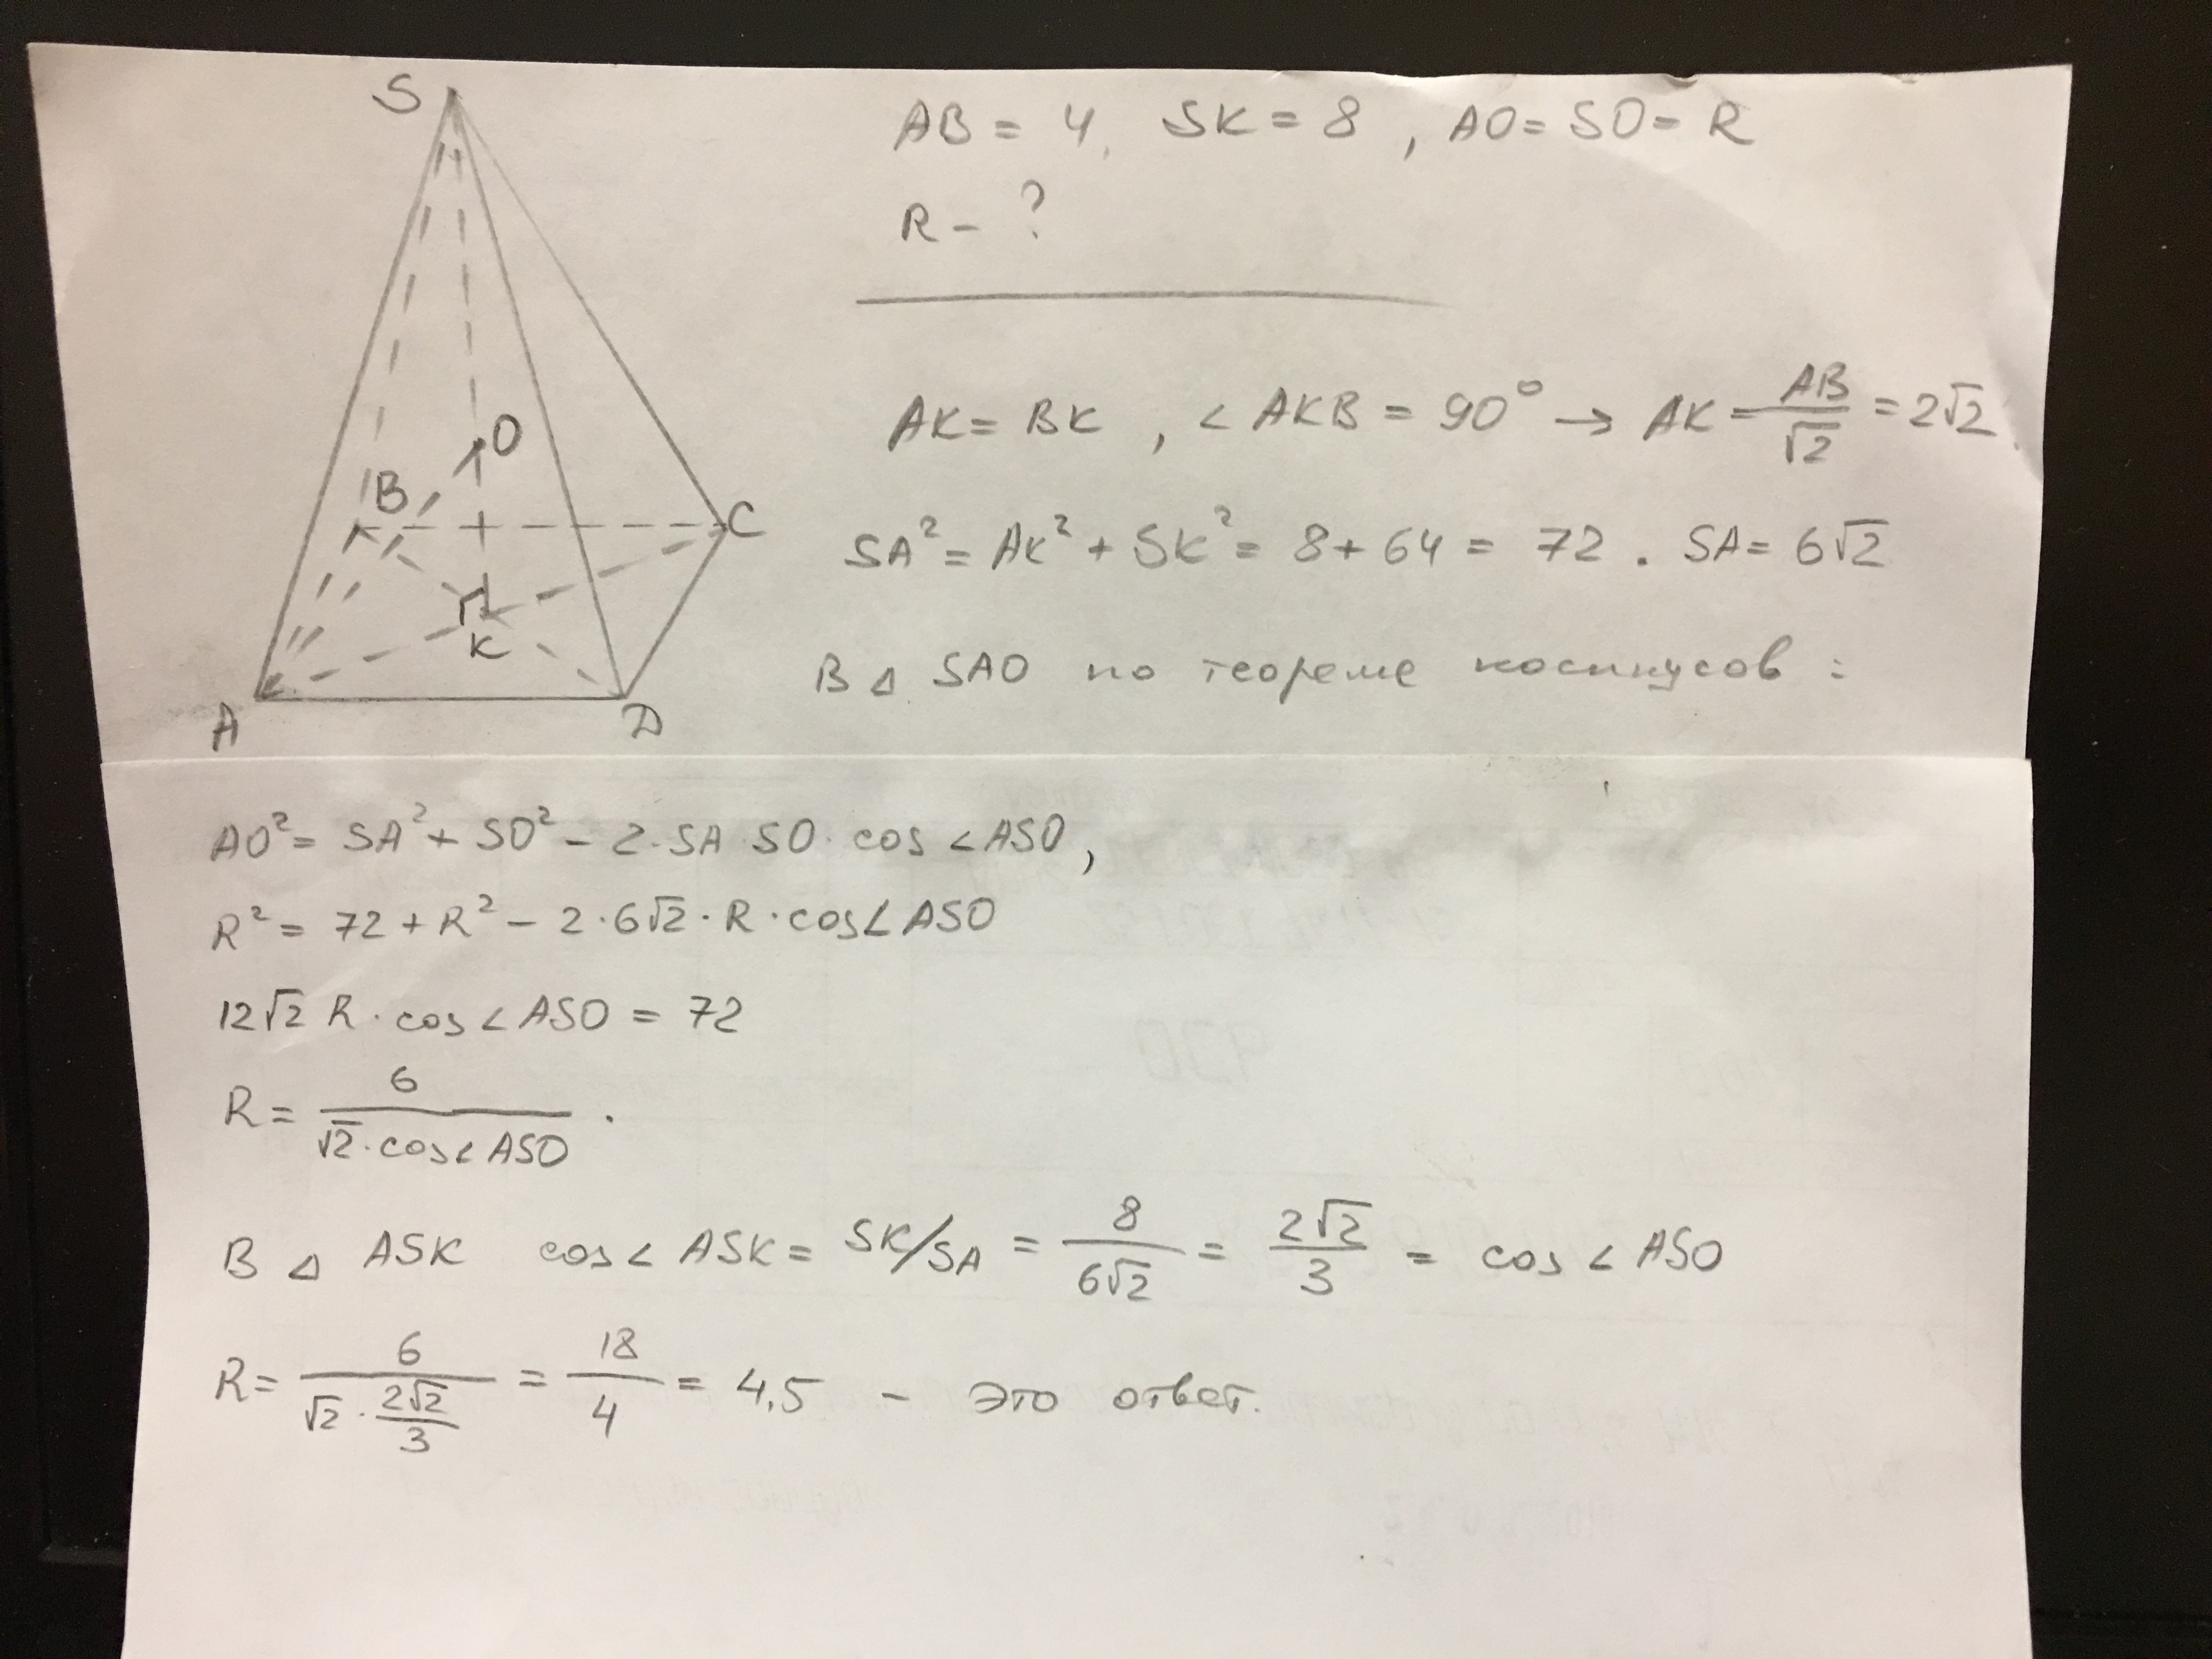 S
AB = 4, SK = 8, AO = SO = R
R - ?
O
B
C
K
A
D
AK = BK, ∠AKB = 90° → AK = AB/√2 = 2√2.
SA² = AK² + SK² = 8 + 64 = 72. SA = 6√2
В △ SAO по теореме косинусов:
AO² = SA² + SO² - 2·SA·SO·cos∠ASO,
R² = 72 + R² - 2·6√2·R·cos∠ASO
12√2 R·cos∠ASO = 72
R = 6/(√2·cos∠ASO).
В △ ASK cos∠ASK = SK/SA = 8/(6√2) = 2√2/3 = cos∠ASO
R = 6/(√2·2√2/3) = 18/4 = 4,5 - это ответ.